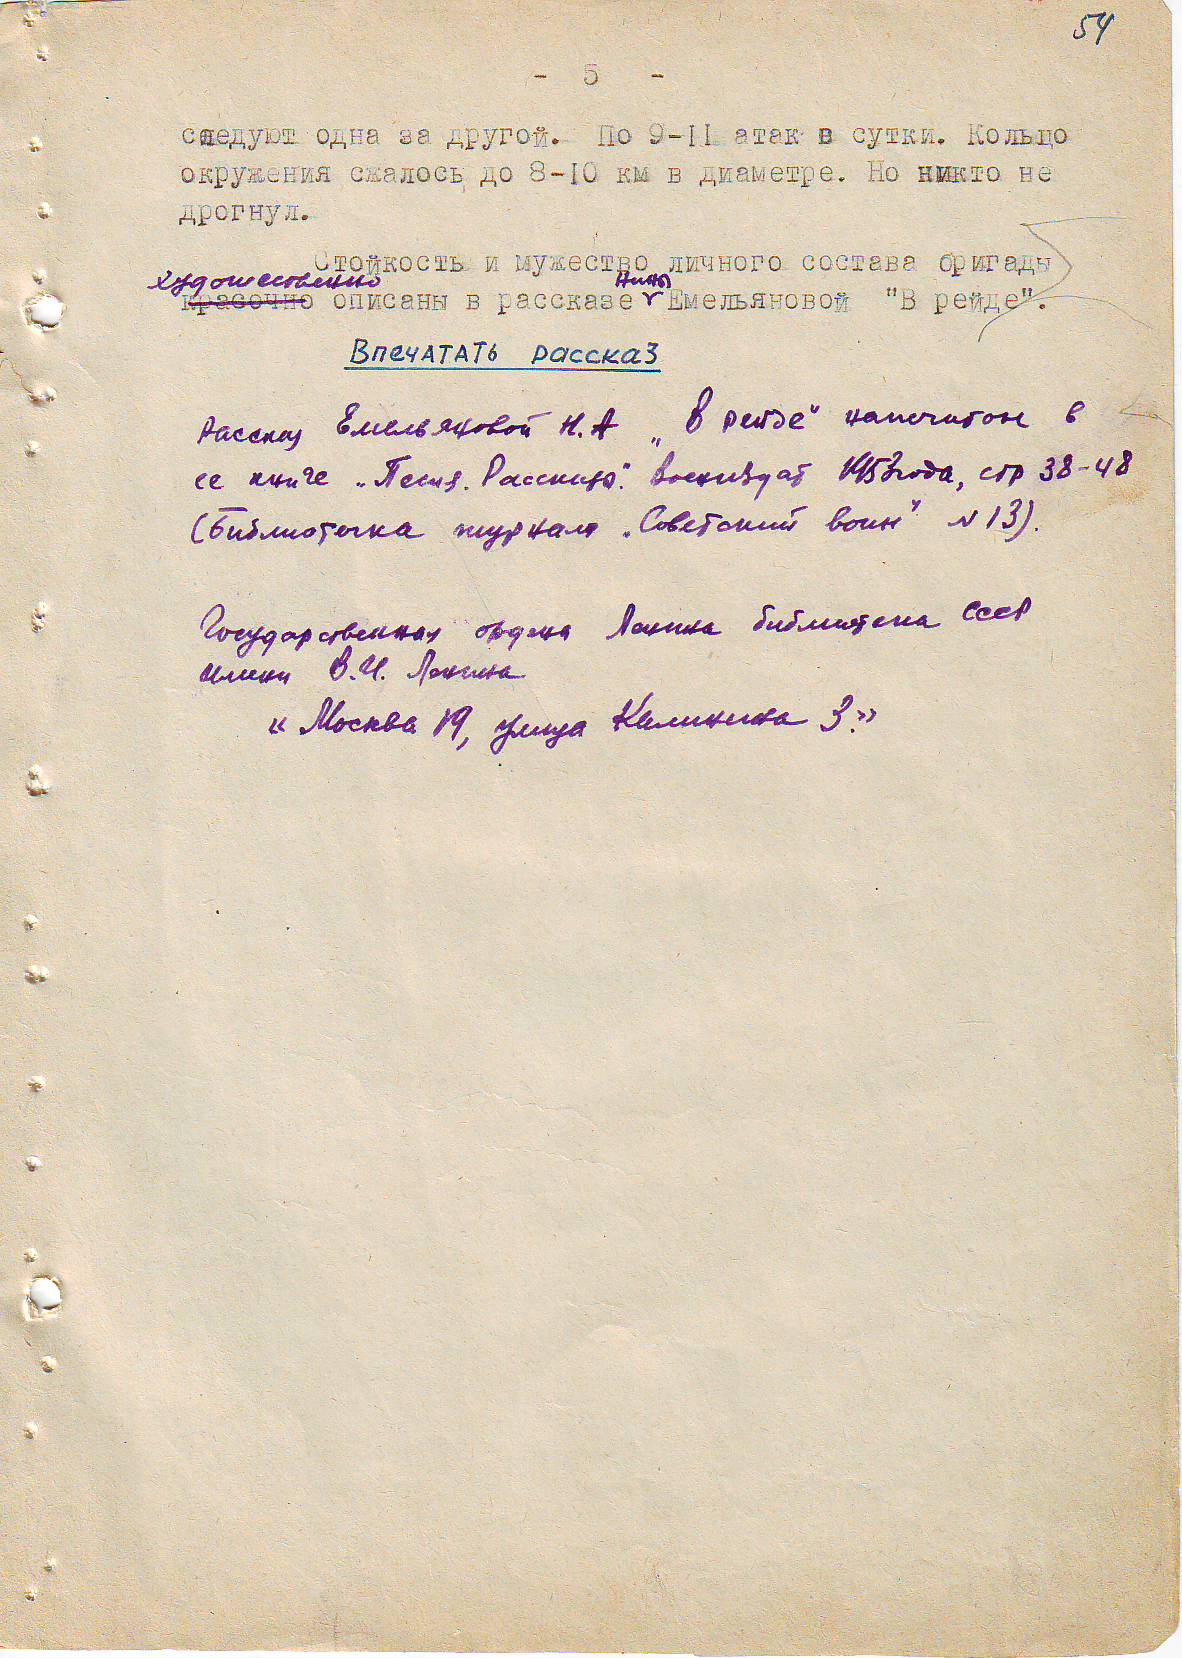 54
- 5 -
следуют одна за другой. По 9-11 атак в сутки. Кольцо
окружения сжалось до 8-10 км в диаметре. Но никто не
дрогнул.
Стойкость и мужество личного состава бригады
художественно Нины
красочно описаны в рассказе Емельяновой "В рейде".
Впечатать рассказ
Рассказ Емельяновой Н.А „В рейде" напечатан в
ее книге „Песня. Рассказы". Воениздат 1953 года, стр 38-48
(Библиотечка журнала „Советский воин" № 13).
Государственная ордена Ленина библиотека СССР
имени В.И. Ленина
« Москва 19, улица Калинина 3.»